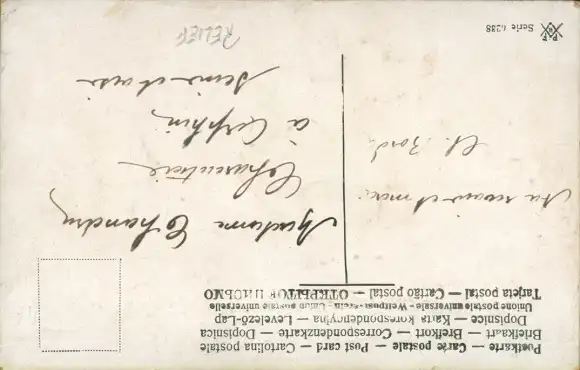 Postkarte — Carte postale — Post card — Cartolina postale
Briefkaart — Brefkort — Correspondenzkarte — Dopisnica
Dopisnice — Karta korespondencyjna — Levelező-Lap
Unione postale universale - Weltpostverein - Union postale universelle
Tarjeta postal — Cartão postal — ОТКРЫТОЕ ПИСЬМО
Au revoir et merci
Madame Chandry
Charcutière
à Corphin
Seine et Oise
RELIEF
Serie 6288